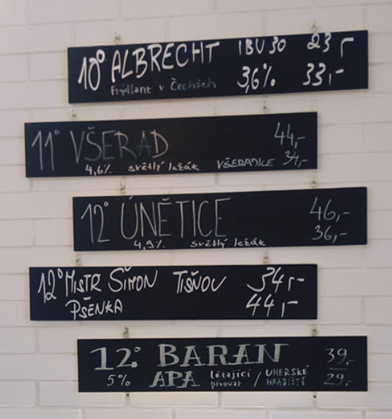 10° ALBRECHT IBU 30 23,-
Frýdlant v Čechách 3,6% 33,-
11° VŠERAD 44,-
4,6% světlý ležák VŠERADICE 34,-
12° ÚNĚTICE 46,-
4,9% světlý ležák 36,-
12° MISTR ŠIMON TIŠNOV 34,-
PŠENKA 44,-
12° BARAN 39,-
5% APA létající pivovar / UHERSKÉ HRADIŠTĚ 29,-